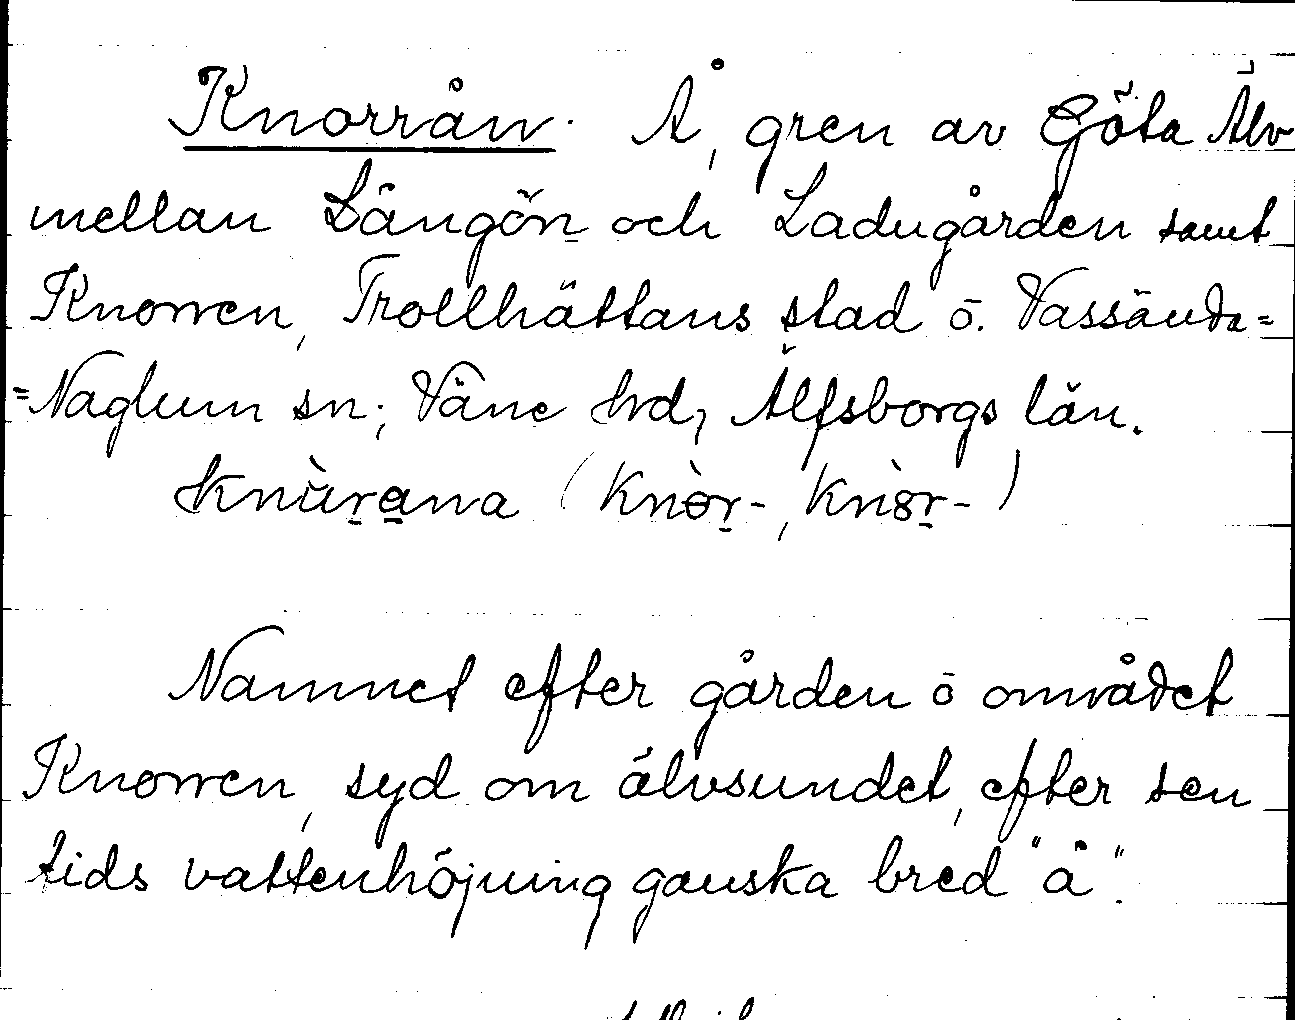 Knorrån. Å, gren av Göta Älv
mellan Långön och Ladugården samt
Knorren, Trollhättans stad o. Vassända=
=Naglum sn; Väne hrd, Älfsborgs län.
knùṟa̱na (knòṟ-, knòṟ-)
Namnet efter gården o området
Knorren, syd om älvsundet, efter sen
tids vattenhöjning ganska bred "å".